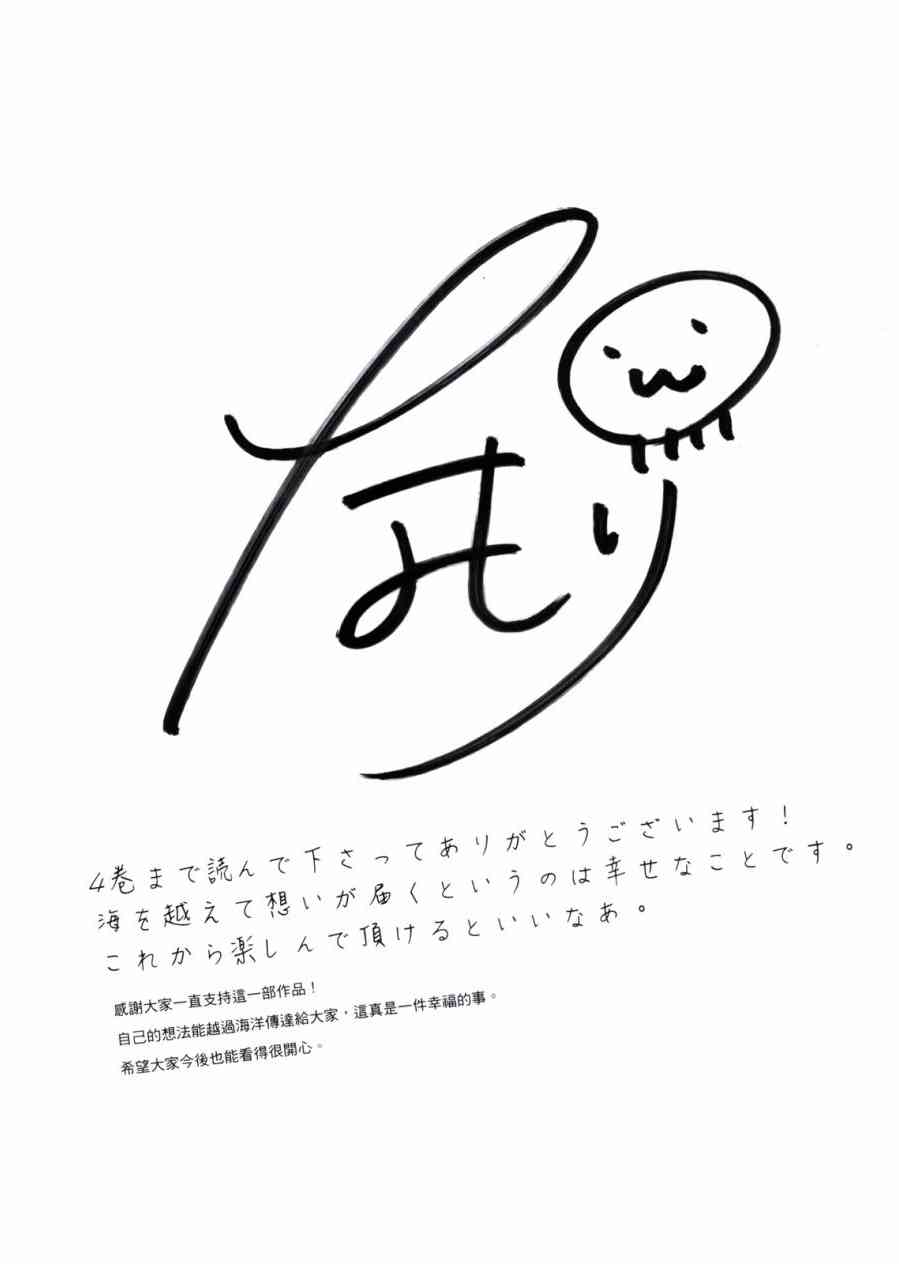 なもり
4巻まで読んで下さってありがとうございます！
海を越えて想いが届くというのは幸せなことです。
これから楽しんで頂けるといいなあ。
感謝大家一直支持這一部作品！
自己的想法能越過海洋傳達給大家，這真是一件幸福的事。
希望大家今後也能看得很開心。